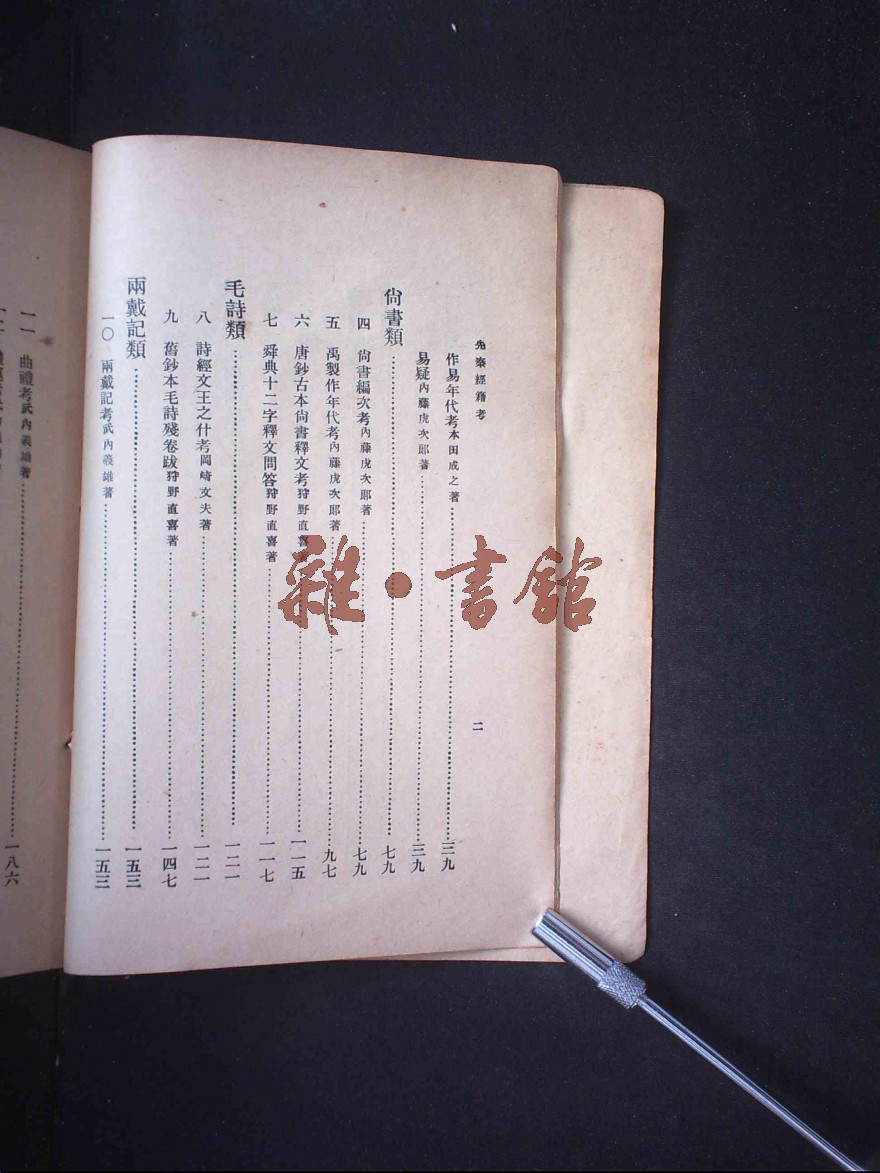 先秦經籍考
二
作易年代考本田成之著……三九
易疑內藤虎次郎著……三九
尙書類……七九
四 尙書編次考內藤虎次郎著……七九
五 禹製作年代考內藤虎次郎著……九七
六 唐鈔古本尙書釋文考狩野直喜……一一五
七 舜典十二字釋文問答狩野直喜著……一一七
毛詩類……一二一
八 詩經文王之什考岡崎文夫著……一二一
九 舊鈔本毛詩殘卷跋狩野直喜著……一四七
兩戴記類……一五三
一〇 兩戴記考武內義雄著……一五三
一一 曲禮考武內義雄著……一八六
雜·書館